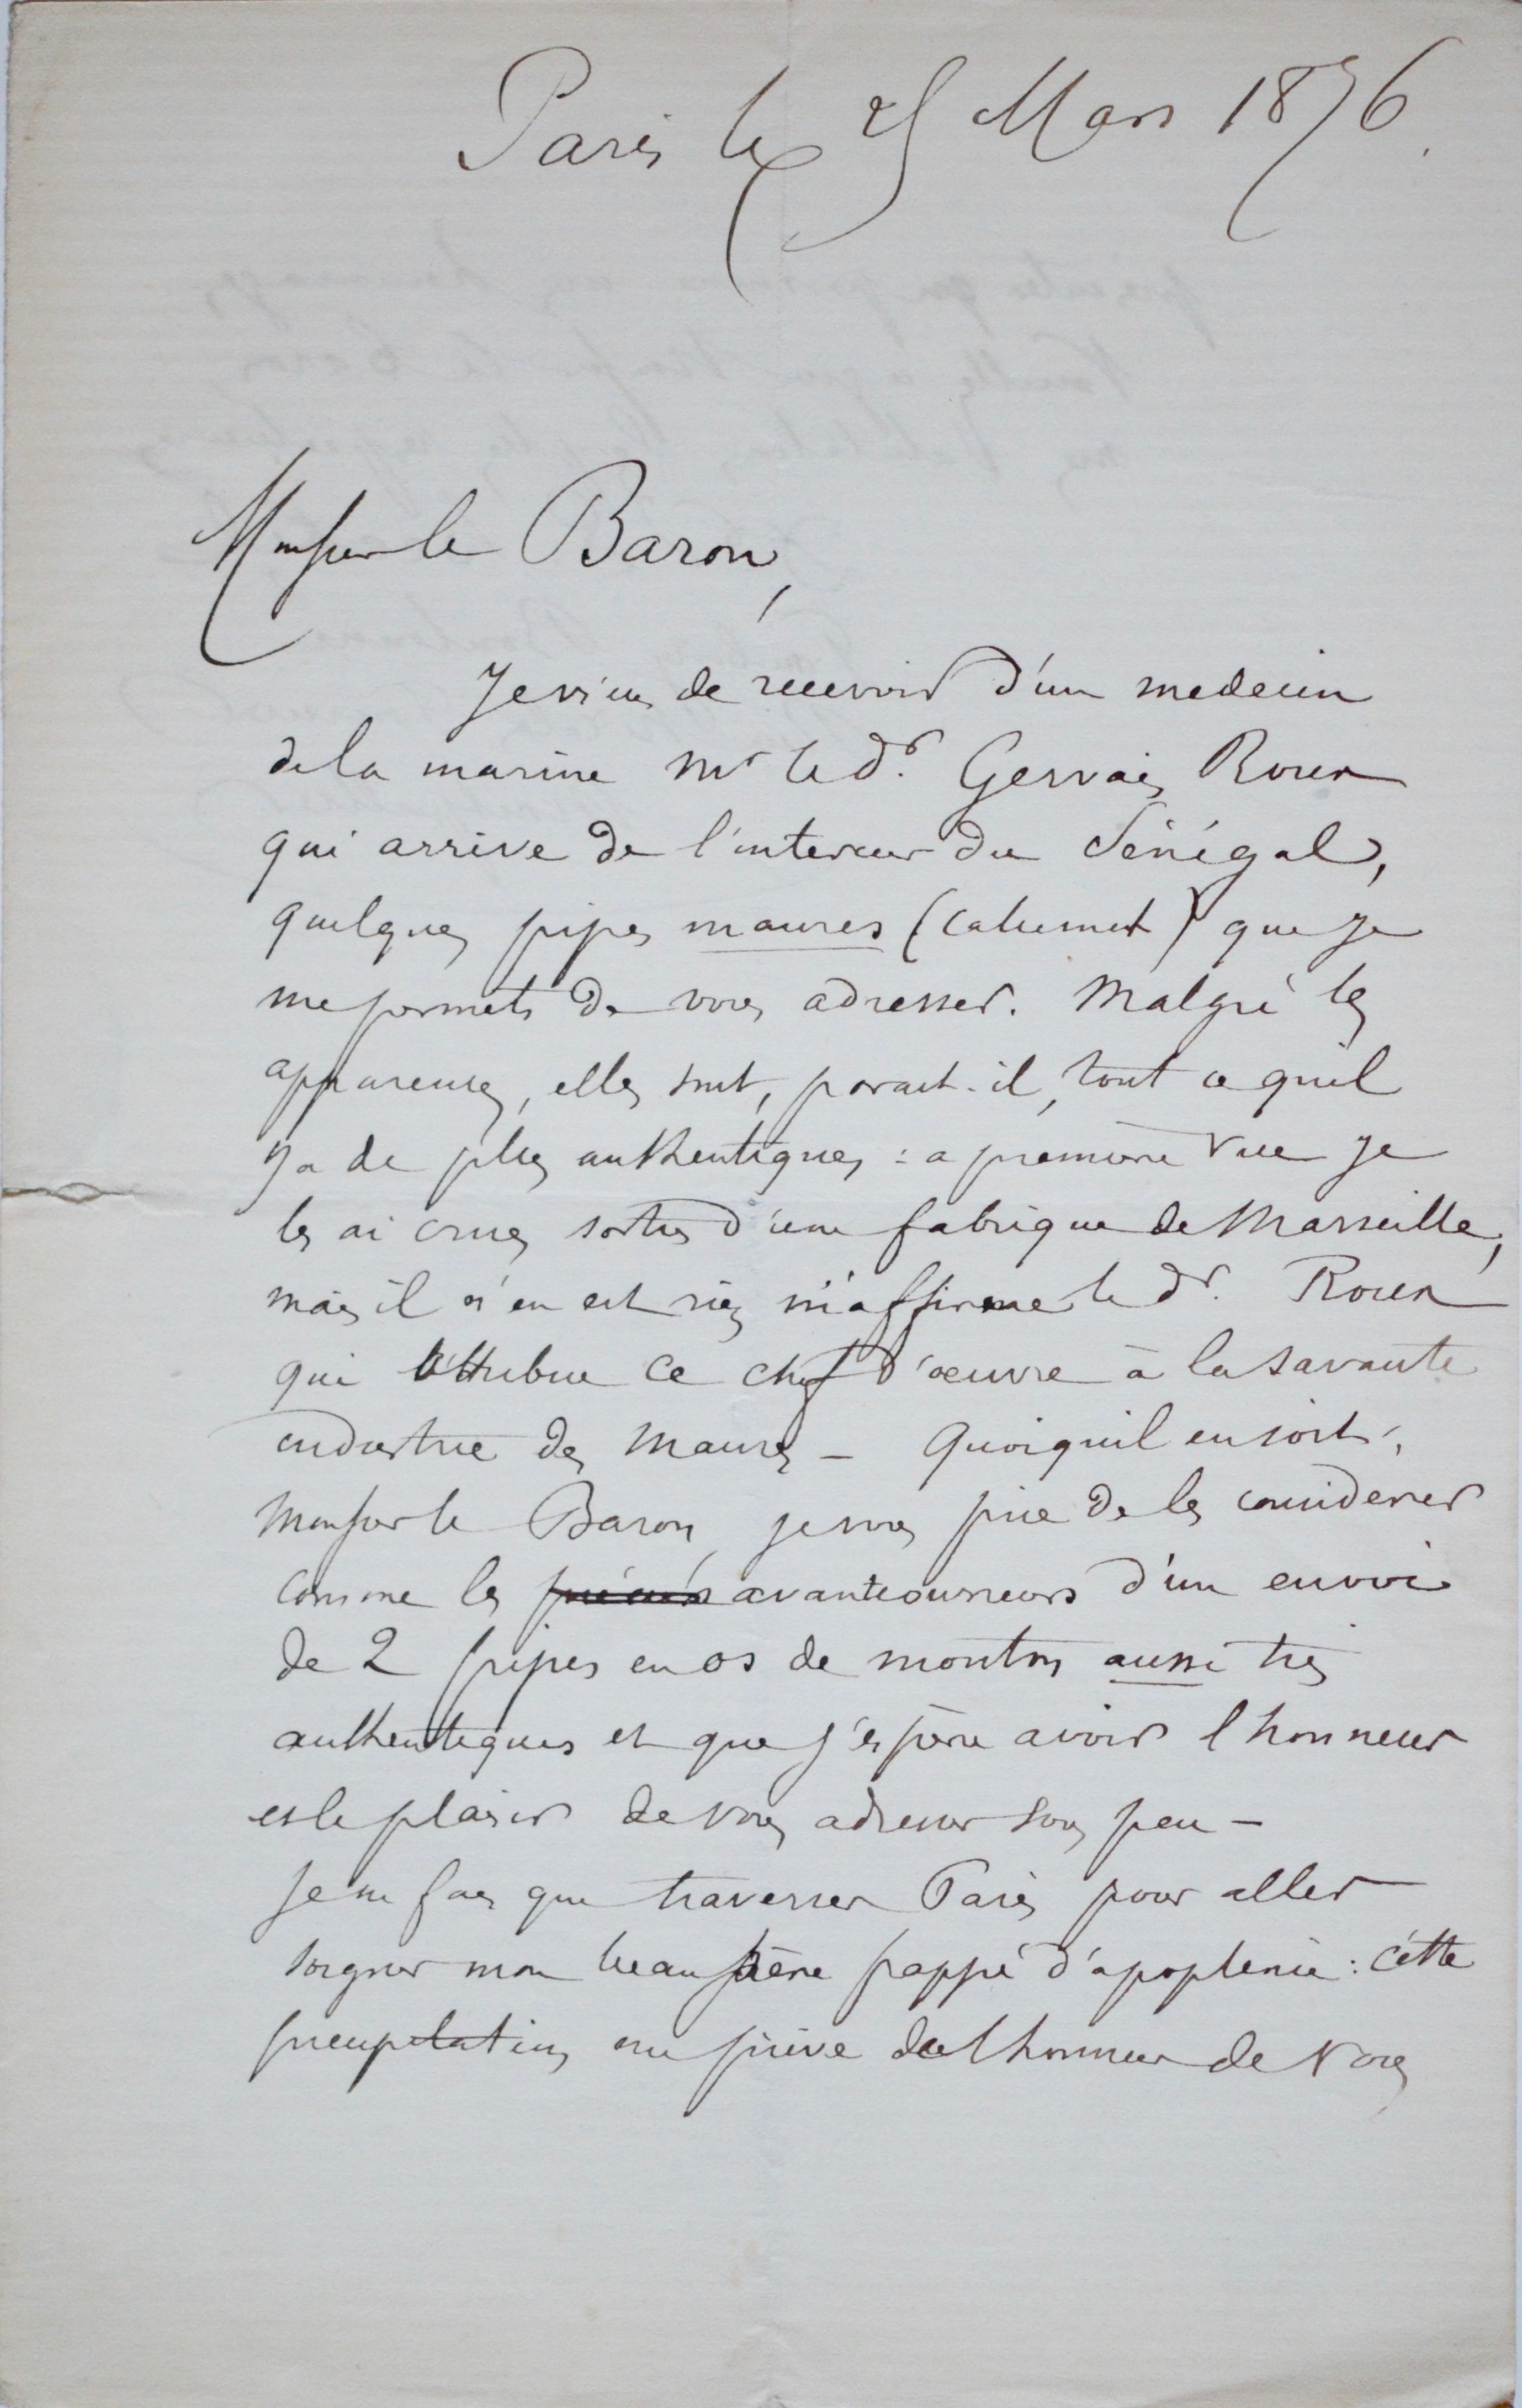 Paris le 25 Mars 1876.
Monsieur le Baron,
Je viens de recevoir d'un medecin
de la marine Mr le dr. Gervais Roux
qui arrive de l'interieur du Sénégal,
quelques pipes maures (calumet) que je
me permets de vous adresser. Malgré les
apparences, elles sont, parait-il, tout ce quil
y a de plus authentiques : a première vue je
les ai crues sorties d'une fabrique de Marseille,
mais il n'en est rien m'affirme le dr. Roux
qui attribue ce chef d'œuvre à la savante
industrie des Maures - Quoiquil en soit,
Monsieur le Baron, je vous prie de les considerer
comme les avantcoureurs d'un envoi
de 2 pipes en os de mouton aussi très
authentiques et que j'espère avoir l honneur
et le plaisir de vous adresser sous peu -
Je ne fais que traverser Paris pour aller
soigner mon beau père frappé d'apoplexie : cette
precipitation me prive de l honneur de vous